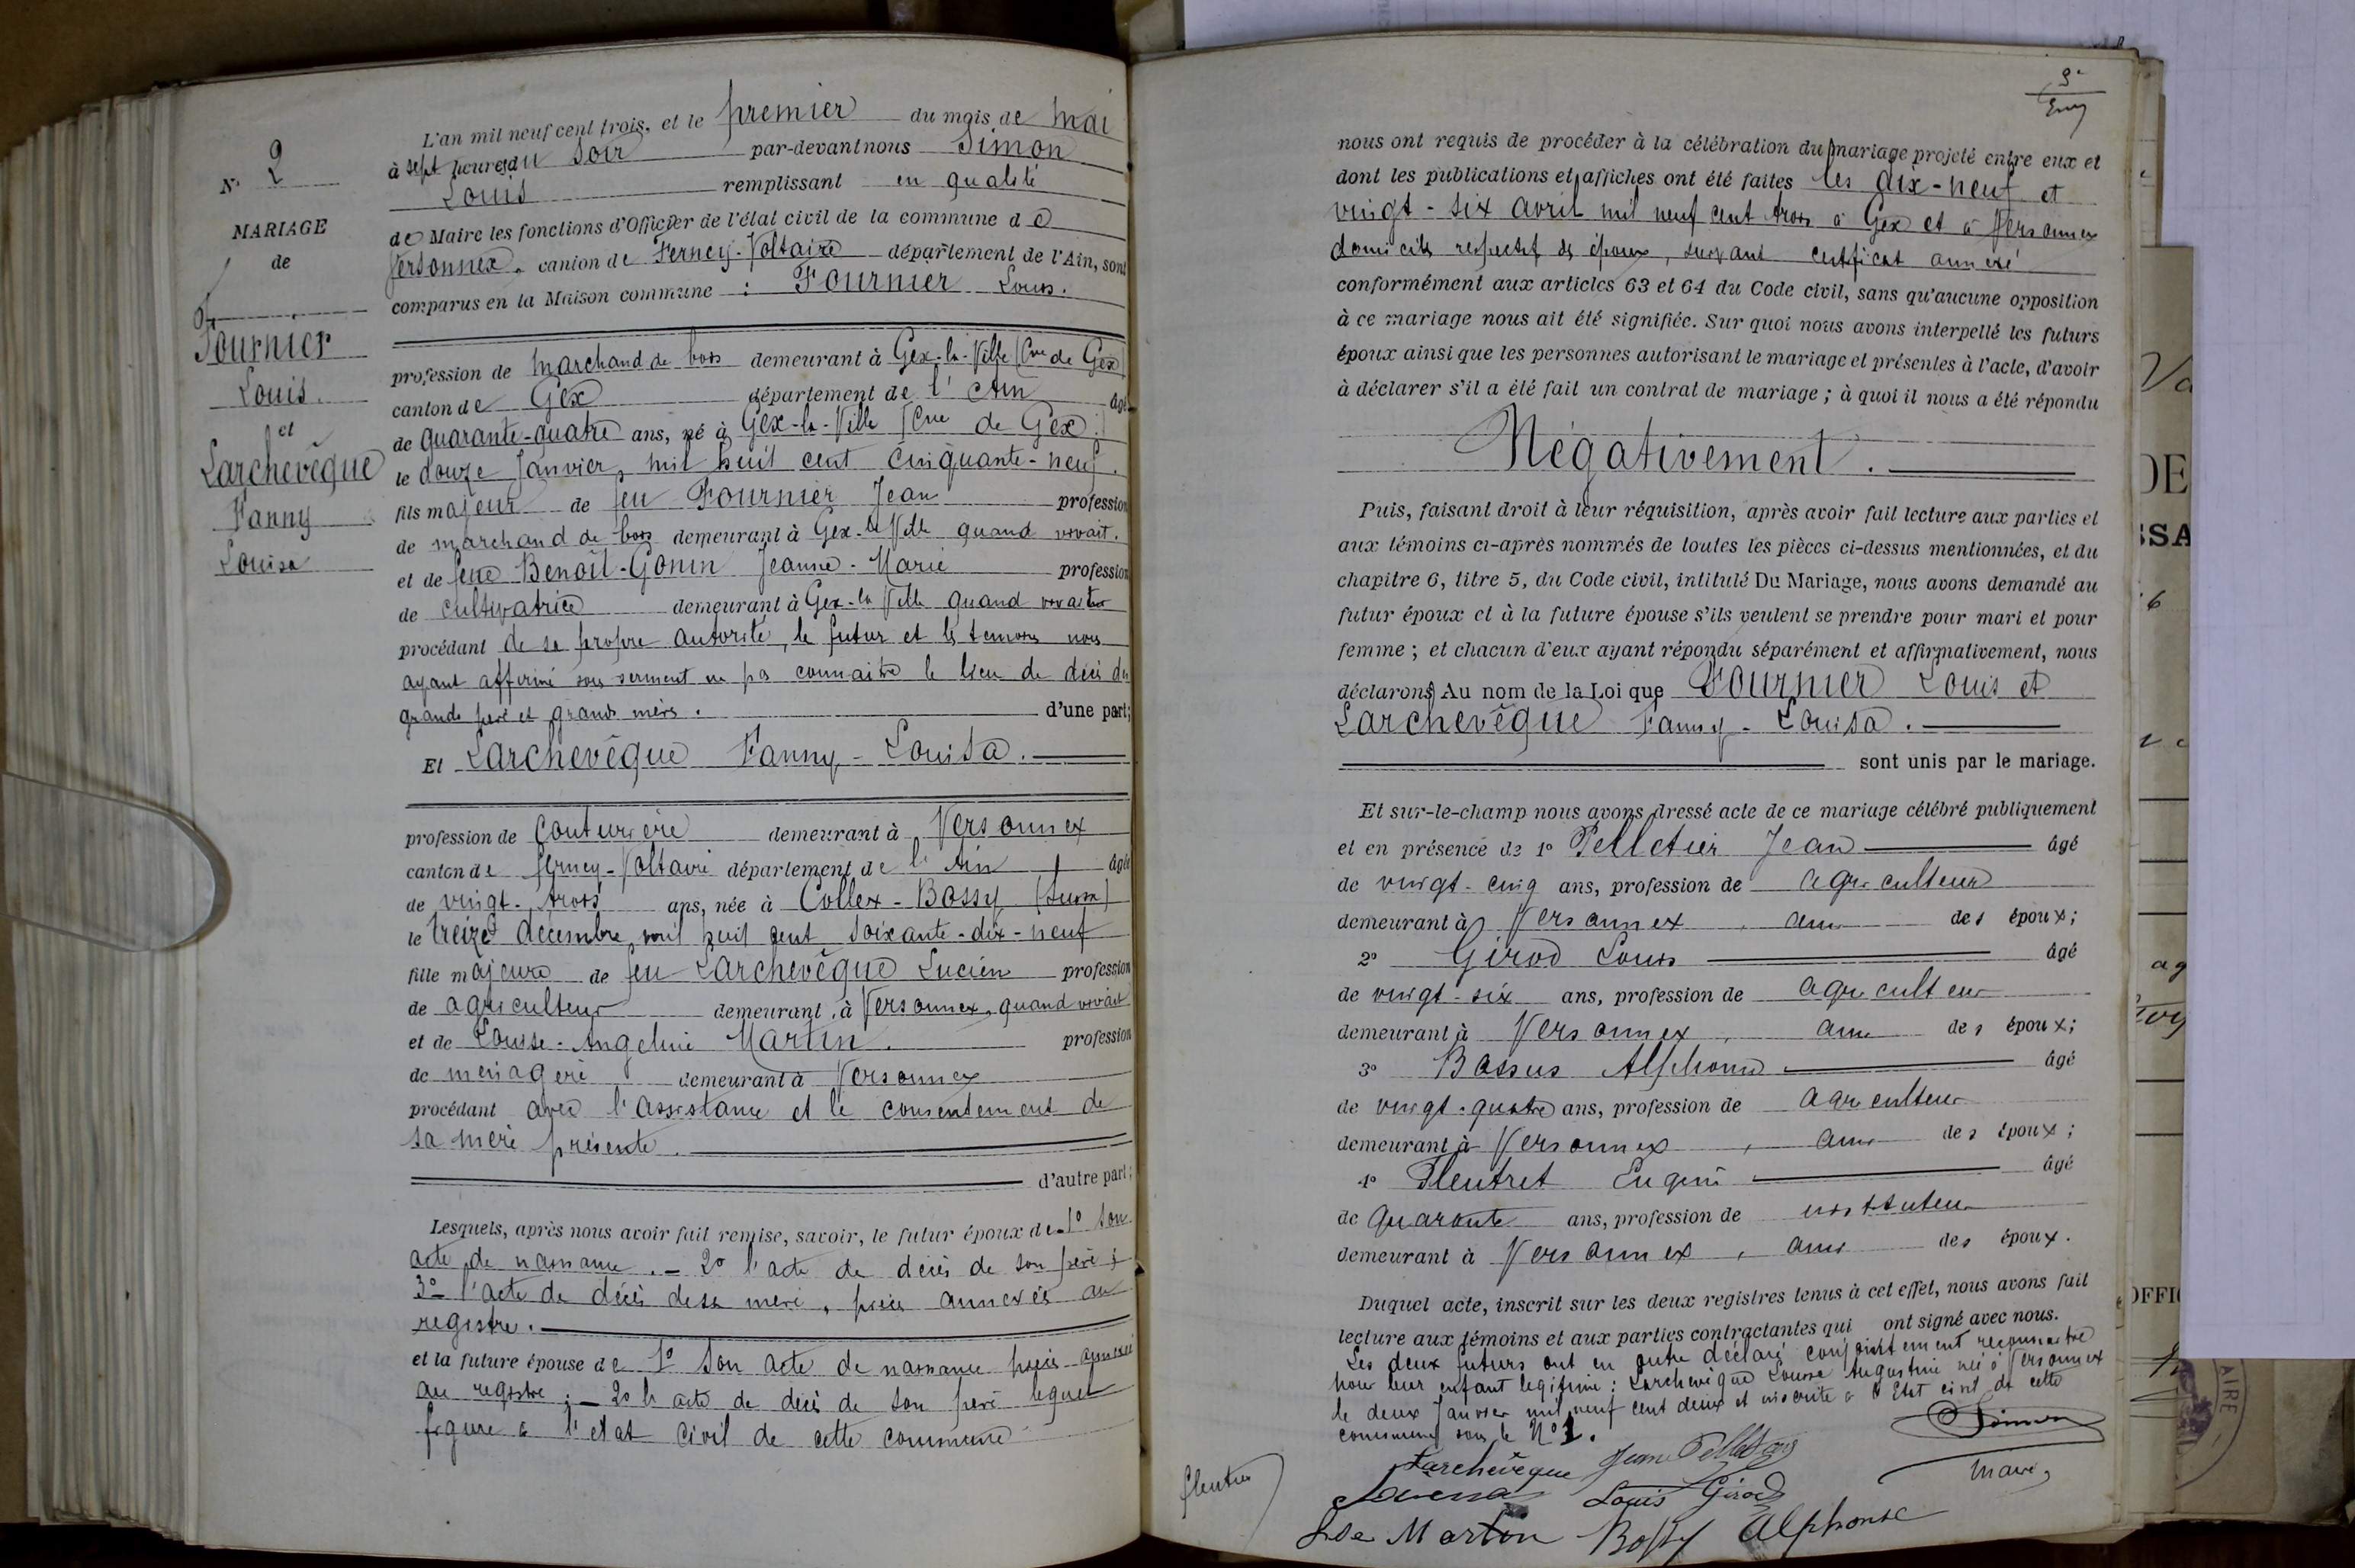 N° 2
MARIAGE
de
Fournier
Louis.
et
Larchevêque
Fanny
Louisa
L'an mil neuf cent trois, et le premier du mois de mai
à sept heures du soir par-devant nous Simon
Louis remplissant en qualité
de Maire les fonctions d'Officier de l'état civil de la commune de
Versonnex, canton de Ferney-Voltaire département de l'Ain, sont
comparus en la Maison commune : Fournier Louis.
profession de marchand de bois demeurant à Gex-la-Ville (Cne de Gex)
canton de Gex département de l'Ain âgé
de quarante-quatre ans, né à Gex-la-Ville (Cne de Gex)
le douze Janvier, mil huit cent cinquante-neuf.
fils majeur de feu Fournier Jean profession
de marchand de bois demeurant à Gex-la-Ville quand vivait.
et de feue Benoît-Gonin Jeanne-Marie profession
de cultivatrice demeurant à Gex-la-Ville quand vivait
procédant de sa propre autorité, le futur et les témoins nous
ayant affirmé sous serment ne pas connaitre le lieu de décès des
grands père et grands mères. d'une part;
Et Larchevêque Fanny-Louisa.
profession de Couturière demeurant à Versonnex
canton de Ferney-Voltaire département de l'Ain âgée
de vingt-trois ans, née à Collex-Bossy (Suisse)
le treize décembre mil huit cent soixante-dix-neuf
fille majeure de feu Larchevêque Lucien profession
de agriculteur demeurant à Versonnex, quand vivait
et de Louise-Angeline Martin. profession
de ménagère demeurant à Versonnex
procédant avec l'assistance et le consentement de
sa mère présente.
d'autre part;
Lesquels, après nous avoir fait remise, savoir, le futur époux de 1° son
acte de naissance. – 2° l'acte de décès de son père;
3° l'acte de décès de sa mère, pièces annexées au
registre.
et la future épouse de 1° son acte de naissance pièce annexée
au registre; – 2° l'acte de décès de son père lequel
figure à l'état civil de cette commune
nous ont requis de procéder à la célébration du mariage projeté entre eux et
dont les publications et affiches ont été faites les dix-neuf et
vingt-six avril mil neuf cent trois à Gex et à Versonnex
domicile respectif des époux, suivant certificat annexé
conformément aux articles 63 et 64 du Code civil, sans qu'aucune opposition
à ce mariage nous ait été signifiée. Sur quoi nous avons interpellé les futurs
époux ainsi que les personnes autorisant le mariage et présentes à l'acte, d'avoir
à déclarer s'il a été fait un contrat de mariage; à quoi il nous a été répondu
Négativement.
Puis, faisant droit à leur réquisition, après avoir fait lecture aux parties et
aux témoins ci-après nommés de toutes les pièces ci-dessus mentionnées, et du
chapitre 6, titre 5, du Code civil, intitulé Du Mariage, nous avons demandé au
futur époux et à la future épouse s'ils veulent se prendre pour mari et pour
femme; et chacun d'eux ayant répondu séparément et affirmativement, nous
déclarons Au nom de la Loi que Fournier Louis et
Larchevêque Fanny-Louisa.
sont unis par le mariage.
Et sur-le-champ nous avons dressé acte de ce mariage célébré publiquement
et en présence de 1° Pelletier Jean âgé
de vingt-cinq ans, profession de agriculteur
demeurant à Versonnex, ami des époux;
2° Girod Louis âgé
de vingt-six ans, profession de agriculteur
demeurant à Versonnex, ami des époux;
3° Bossus Alphonse âgé
de vingt-quatre ans, profession de agriculteur
demeurant à Versonnex, ami des époux;
4° Fleutret Eugène âgé
de quarante ans, profession de instituteur
demeurant à Versonnex, ami des époux.
Duquel acte, inscrit sur les deux registres tenus à cet effet, nous avons fait
lecture aux témoins et aux parties contractantes qui ont signé avec nous.
Les deux futurs ont en outre déclaré conjointement reconnaitre
pour leur enfant légitime: Larchevêque Louise Augustine née à Versonnex
le deux Janvier mil neuf cent deux et inscrite à l'Etat civil de cette
commune sous le N° 1.
Simon
Larchevêque Jean Pelletier
Maire
Louis Girod
Martin Bossy Alphonse